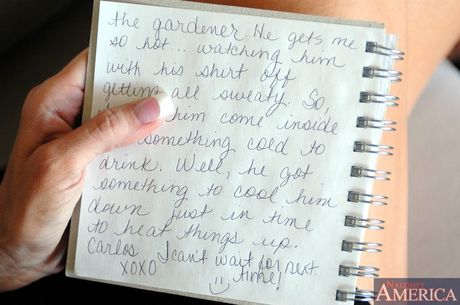 the gardener. He gets me
so hot... watching him
with his shirt off
gitting all sweaty. So,
him come inside
something cold to
drink. Well, he got
something to cool him
down just in time
to heat things up.
Carlos I can't wait for next
XOXO time!
NAUGHTY
AMERICA